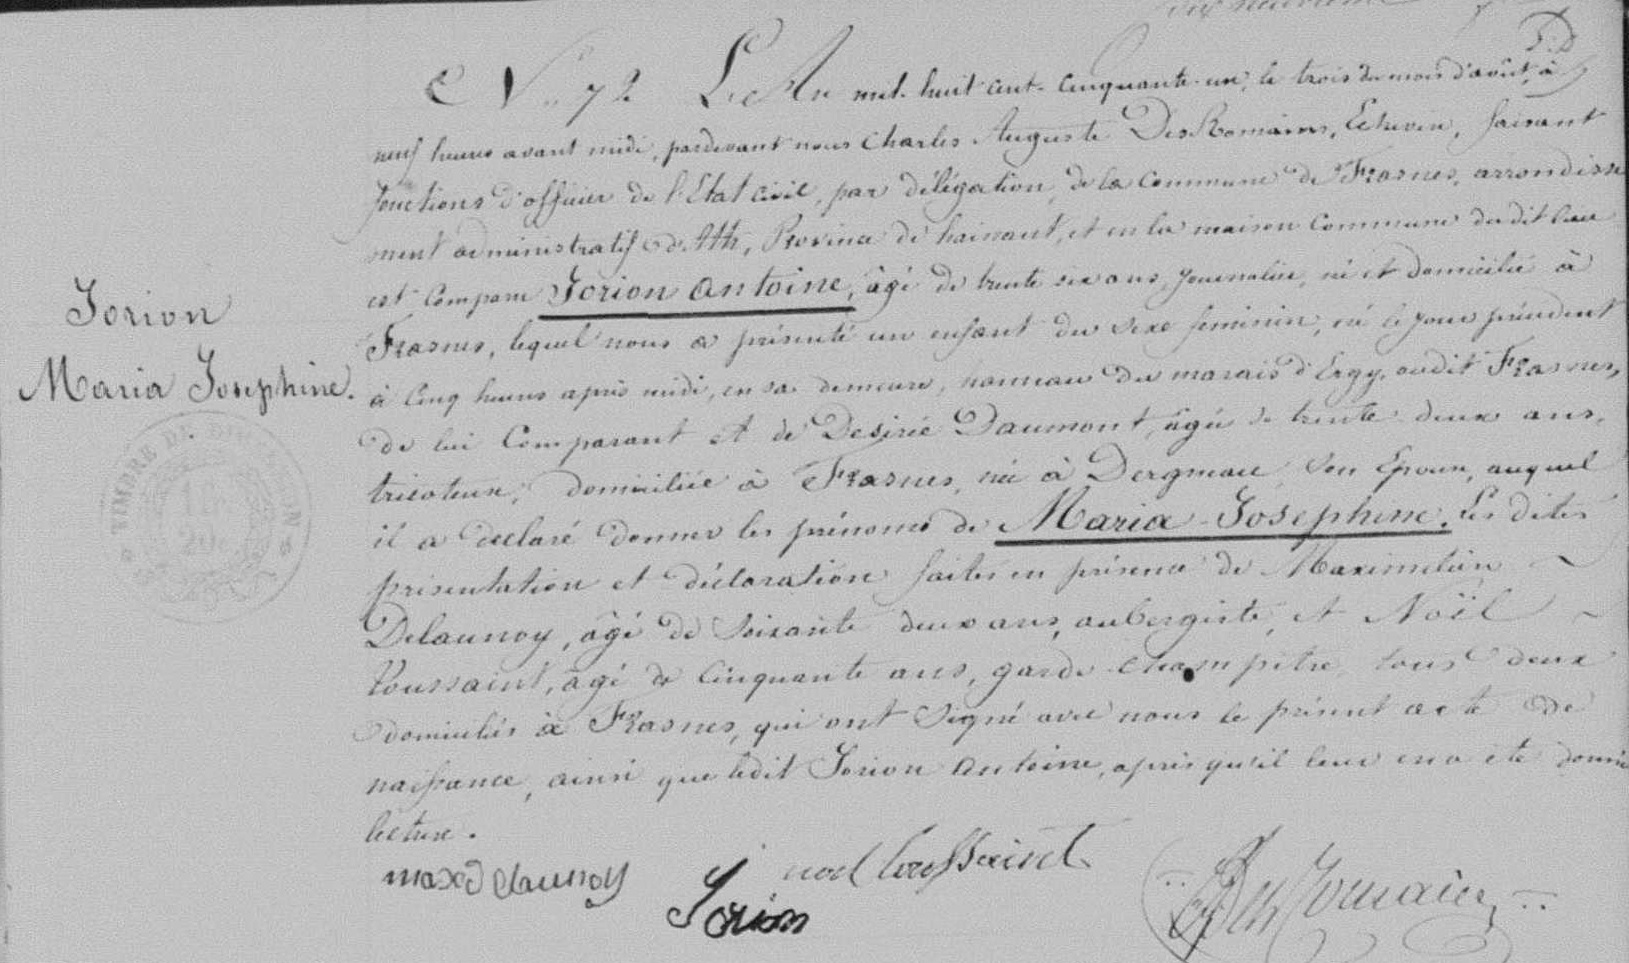 N° 72 L'An mil huit cent cinquante un, le trois du mois d'août, à
neuf heures avant midi, pardevant nous Charles Auguste DesRomains, Echevin, faisant
fonctions d'officier de l'Etat civil, par délégation, de la commune de Frasnes, arrondisse
ment administratif d'Ath, Province de hainaut, et en la maison Commune dudit lieu
est comparu Jorion Antoine, âgé de trente six ans, journalier, né et domicilié à
Jorion
Frasnes, lequel nous a présenté un enfant du sexe feminin, né le jour précédent
Maria Josephine.
à cinq heures après midi, en sa demeure, hameau du marais d'Ergy, audit Frasnes,
de lui Comparant et de Desirée Daumont, âgée de trente deux ans,
tricoteuse, domiciliée à Frasnes, née à Dergneau, son Epouse, auquel
il a declaré donner les prénoms de Maria-Josephine. Les dites
présentation et déclaration faites en présence de Maximilien
Delaunoy, âgé de soixante deux ans, aubergiste, et Noël
Toussaint, âgé de cinquante ans, garde champêtre, tous deux
domiciliés à Frasnes, qui ont signé avec nous le présent acte de
naissance, ainsi que ledit Jorion Antoine, après qu'il leur en a été donné
lecture.
max Delaunoy noel toussaint
Jorion DesRomains
TIMBRE DE DIMENSION